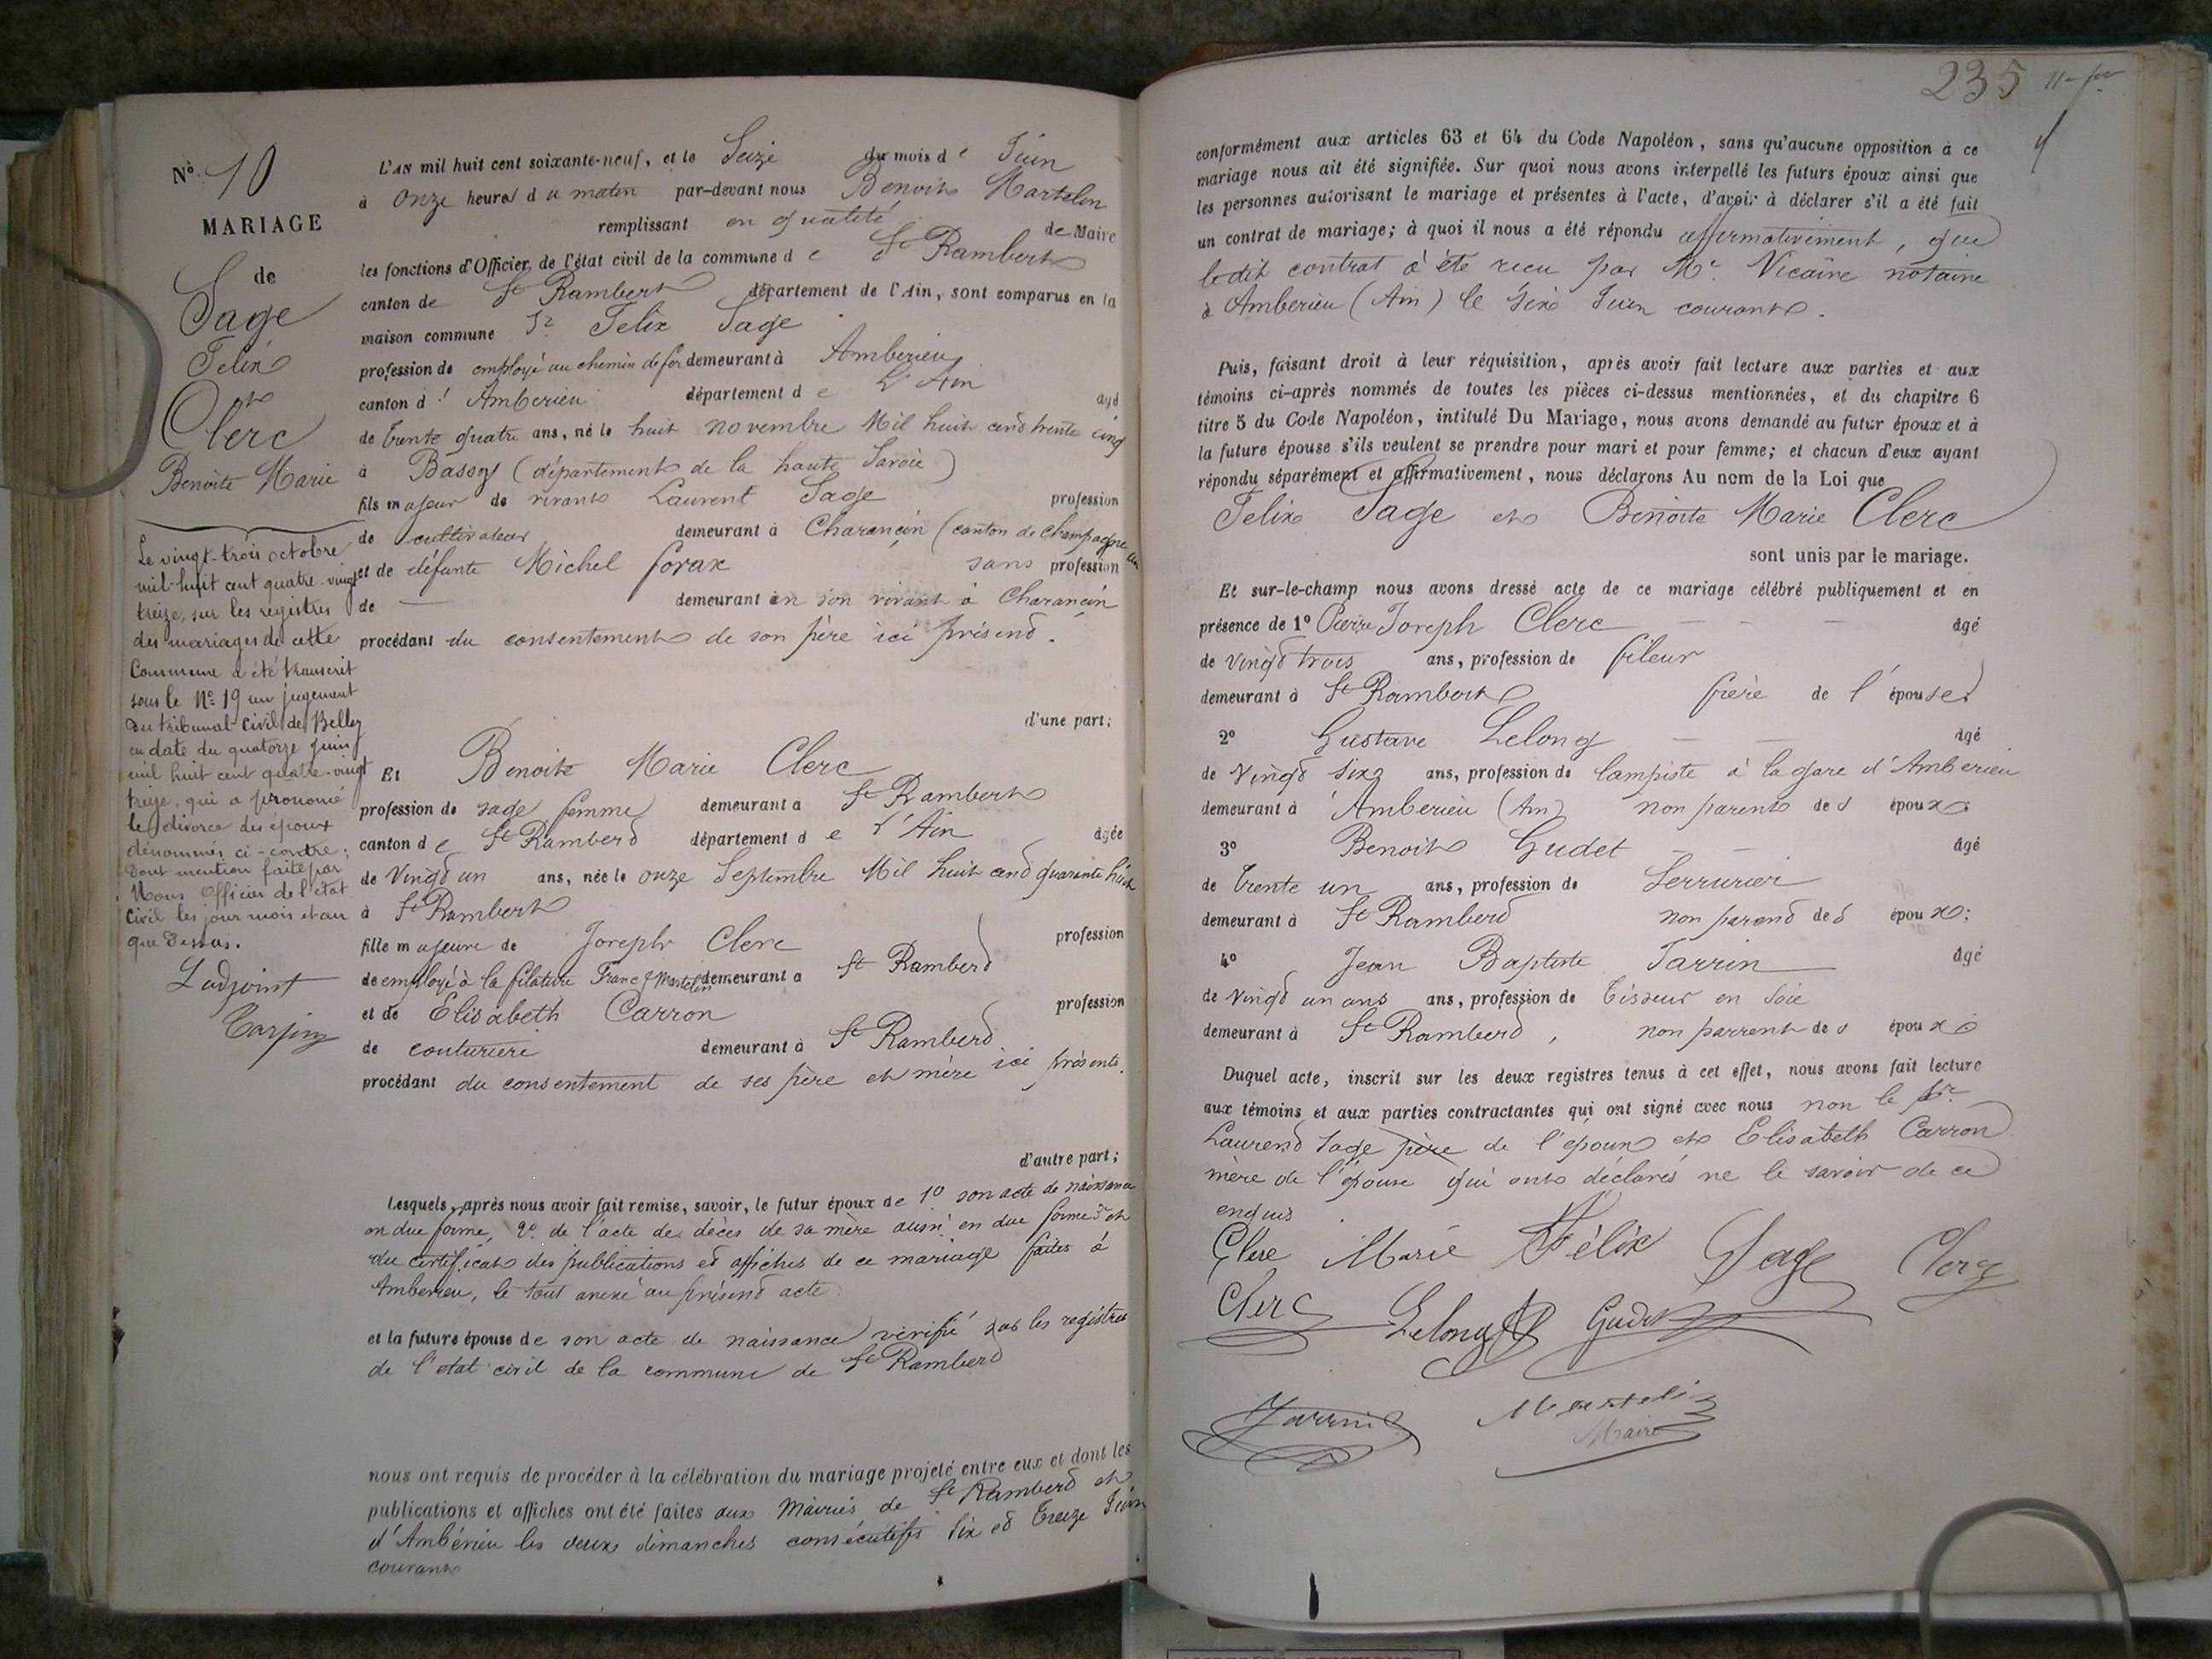 Nº 10
MARIAGE
de
Sage
Felix
Clerc
Benoite Marie
Le vingt-trois octobre
mil-huit cent quatre-vingt
treize, sur les registres
des mariages de cette
Commune a été transcrit
sous le Nº 19 un jugement
du tribunal Civil de Belley
en date du quatorze juin
mil huit cent quatre-vingt
treize, qui a prononcé
le divorce des époux
dénommés ci-contre;
dont mention faite par
Nous Officier de l'état
Civil les jour mois et an
que dessus.
L'adjoint
L'AN mil huit cent soixante-neuf, et le Seize du mois de Juin
à onze heures du matin par-devant nous Benoit Martelin
remplissant en qualité de Maire
les fonctions d'Officier de l'état civil de la commune de St Rambert
canton de St Rambert département de l'Ain, sont comparus en la
maison commune Sr Felix Sage
profession de employé au chemin de fer demeurant à Amberieu
canton d' Amberieu département de L'Ain âgé
de trente quatre ans, né le huit novembre Mil huit cent trente cinq
à Bassy (département de la haute Savoie)
fils majeur de vivant Laurent Sage profession
de cultivateur demeurant à Charancin (canton de Champagne
et de défunte Michel forax sans profession
de — demeurant en son vivant à Charancin
procédant du consentement de son père ici présent.
d'une part;
Et Benoite Marie Clerc
profession de sage femme demeurant à St Rambert
canton de St Rambert département de l'Ain âgée
de Vingt un ans, née le onze Septembre Mil huit cent quarante huit
à St Rambert
fille majeure de Joseph Clerc profession
de employé à la filature Franc & Martelin demeurant à St Rambert
et de Elisabeth Carron profession
de couturière demeurant à St Rambert
procédant du consentement de ses père et mère ici présents.
d'autre part;
Lesquels, après nous avoir fait remise, savoir, le futur époux de 1º son acte de naissance
en due forme, 2º de l'acte de décès de sa mère aussi en due forme 3º et
du certificat des publications et affiches de ce mariage faites à
Amberieu, le tout anexé au présent acte.
et la future épouse de son acte de naissance vérifié sur les registres
de l'état civil de la commune de St Rambert
nous ont requis de procéder à la célébration du mariage projeté entre eux et dont les
publications et affiches ont été faites aux Mairies de St Rambert et
d'Ambérieu les deux dimanches consécutifs Six et Treize Juin
courant
235
conformément aux articles 63 et 64 du Code Napoléon, sans qu'aucune opposition à ce
mariage nous ait été signifiée. Sur quoi nous avons interpellé les futurs époux ainsi que
les personnes autorisant le mariage et présentes à l'acte, d'avoir à déclarer s'il a été fait
un contrat de mariage; à quoi il nous a été répondu affirmativement, que
ledit contrat a été recu par Me. Nicaire notaire
à Amberieu (Ain) le six Juin courant.
Puis, faisant droit à leur réquisition, après avoir fait lecture aux parties et aux
témoins ci-après nommés de toutes les pièces ci-dessus mentionnées, et du chapitre 6
titre 5 du Code Napoléon, intitulé Du Mariage, nous avons demandé au futur époux et à
la future épouse s'ils veulent se prendre pour mari et pour femme; et chacun d'eux ayant
répondu séparément et affirmativement, nous déclarons Au nom de la Loi que
Felix Sage et Benoite Marie Clerc
sont unis par le mariage.
Et sur-le-champ nous avons dressé acte de ce mariage célébré publiquement et en
présence de 1º Pierre Joseph Clerc — — — âgé
de vingt trois ans, profession de fileur
demeurant à St Rambert frère de l'épouse;
2º Gustave Lelong — — âgé
de Vingt six ans, profession de lampiste à la gare d'Amberieu
demeurant à Amberieu (Ain) non parent des époux;
3º Benoit Gudet — — âgé
de trente un ans, profession de Serrurier
demeurant à St Rambert non parent des époux;
4º Jean Baptiste Tarrin — âgé
de vingt un ans ans, profession de tisseur en soie
demeurant à St Rambert, non parrent des époux
Duquel acte, inscrit sur les deux registres tenus à cet effet, nous avons fait lecture
aux témoins et aux parties contractantes qui ont signé avec nous non le Sr.
Laurent Sage père de l'époux et Elisabeth Carron
mère de l'épouse qui ont déclarés ne le savoir de ce
enquis
Clerc Marie Félix Sage Clerc
Clerc Lelong Gudet
Tarrin Martelin
Maire